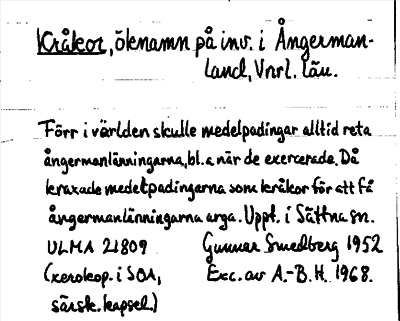 Kråkor, öknamn på inv. i Ångerman-
land, Vnrl. län.
Förr i världen skulle medelpadingar alltid reta
ångermanlänningarna, bl.a. när de exercerade. Då
kraxade medelpadingarna som kråkor för att få
ångermanlänningarna arga. Uppt. i Sättna sn.
ULMA 21809 Gunnar Smedberg 1952
(xerokop. i SOA, Exc. av A.-B. H. 1968.
särsk. kapsel.)